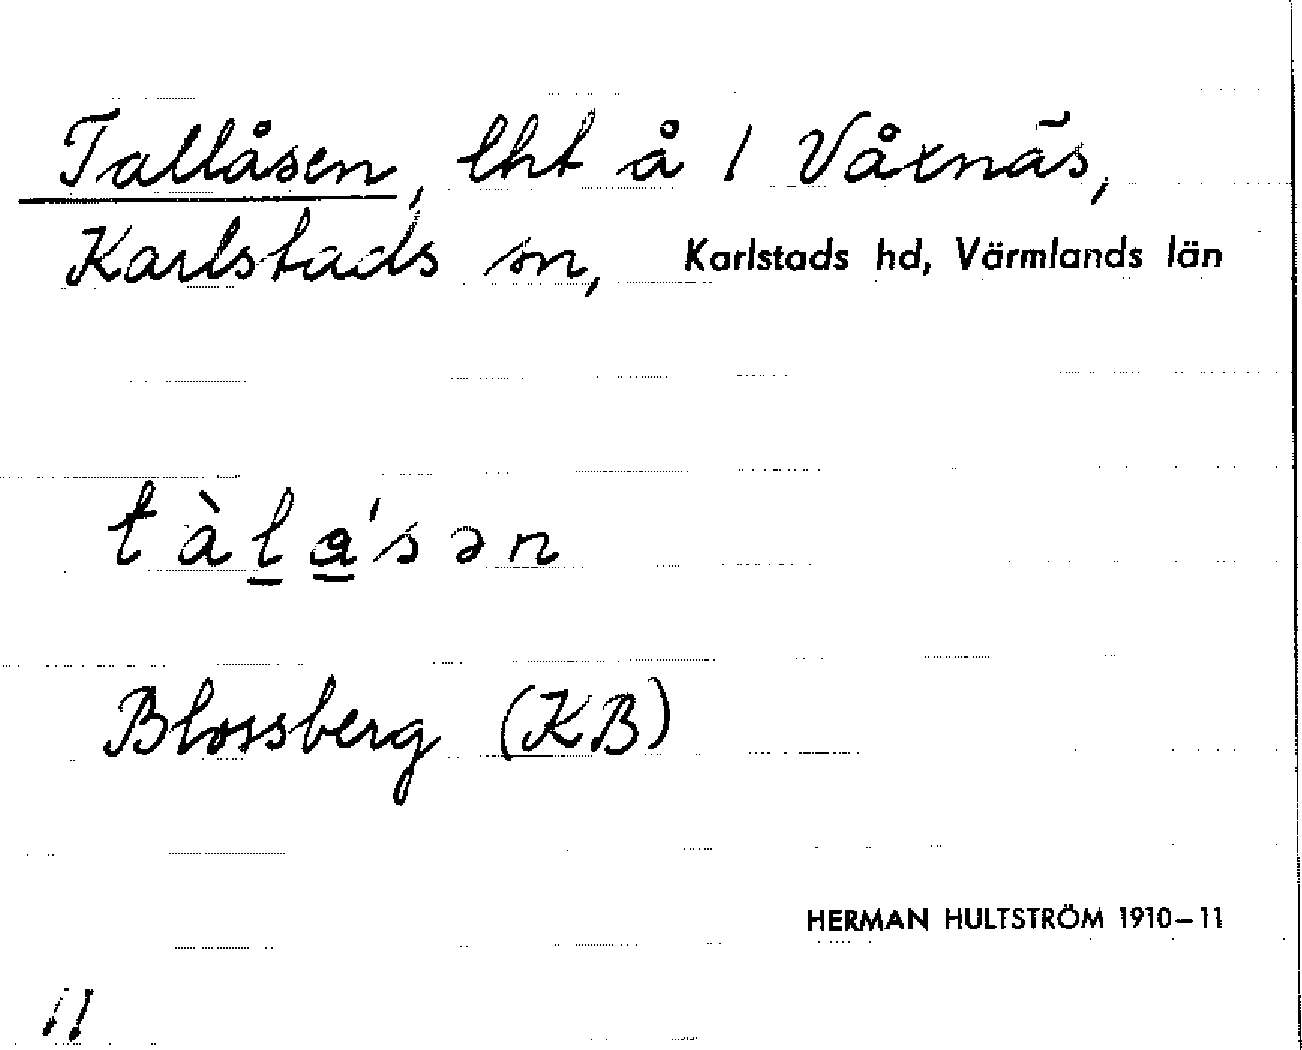 Tallåsen, lht å 1 Våxnäs,
Karlstads sn, Karlstads hd, Värmlands län
tàla̠'sən
Blossberg (KB)
HERMAN HULTSTRÖM 1910–11